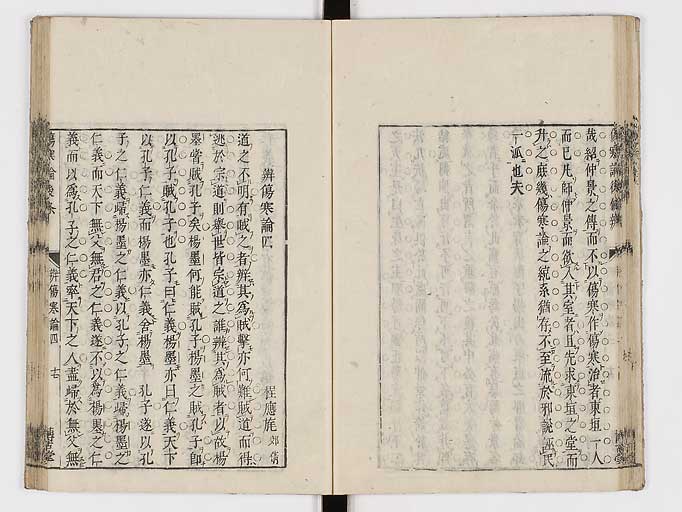 哉紹仲景之傳而不以傷寒作傷寒治者東垣一人
而已凡師仲景而欲入其室者且先求東垣之堂而
升之庶幾傷寒論之統系猶存不至流於邪說誣民
一派也夫
辨傷寒論四
程應旄郊倩
道之不明有賊之者辨其爲賊擊亦何難賊道而得
逃於宗道則舉世皆宗道之誰辨其爲賊者以故楊
墨嘗賊孔子矣楊墨何能賊孔子楊墨之賊孔子卽
以孔子賊孔子也孔子曰仁義楊墨亦曰仁義天下
以孔子仁義而楊墨亦仁義舍楊墨 孔子遂以孔
子之仁義歸楊墨之仁義以孔子之仁義歸楊墨之
仁義而天下無父無君之仁義遂不以爲楊墨之仁
義而以爲孔子之仁義率天下之人盡歸於無父無
辨傷寒論四